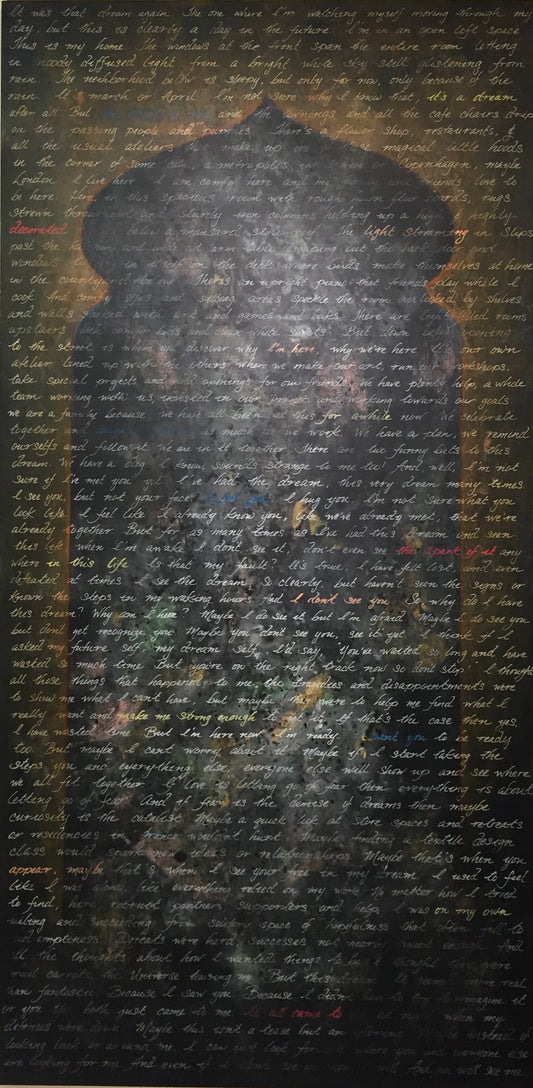 It was that dream again. The one where I'm watching myself moving through my
day, but this is clearly a day in the future. I'm in an open loft space
This is my home. The windows at the front span the entire room letting
in moody diffused light from a bright white sky still glistening from
rain. The neighborhood below is sleepy, but only for now, only because of the
rain. It's march or April. I'm not sure why I know that, it's a dream
after all. But and the awnings and all the cafe chairs drip
on the passing people and puppies. There's a flower shop, restaurants, &
all the usual ateliers that make up one magical little hoods
in the corner of some city, a metropolis Copenhagen, maybe
London. I live here. I am comfy here and my family and friends love to
be here. Here in this spacious room with rough hewn floor boards, rugs
strewn throughout and sturdy iron columns holding up a high, highly
decorated below mansard style roof. The light streaming in slips
past the kitchen and wide arm table out the back and
windows on the deck where birds make themselves at home
in the country There's an upright piano that friends play while I
cook. And comfy sofas and setting areas speckle the room by shelves
and walls with art and games and books. There are filled rooms
upstairs with and white But down below opening
to the street is where discover why I'm here, why we're here. It's our own
atelier lined up with others where we make our art, run workshops,
take special projects and hold openings for our friends. We have plenty help, a whole
team working with us, invested in our projects and working towards our goals
we are a family because we have all been at this for awhile now. We celebrate
together and much as we work. We have a plan, we remind
ourselves and follow it. We are in it together. There are two funny bits to this
dream. We have a dog. I know, sounds strange to me too! And, well, I'm not
sure if I've met you yet. I've had the dream, this very dream many times
I see you, but not your face. I I hug you. I'm not sure what you
look like. I feel like I already know you, like we've already met, that we're
already together. But for as many times as I've had this dream and seen
this life, when I'm awake I don't see it, don't even see the spark of it any
where in this life. Is that my fault? It's true. I have felt lost and even
defeated at times. I see the dream so clearly, but haven't seen the signs or
known the steps in my waking hours. And I don't see you. So why do I have
this dream? Why am I here? Maybe I do see it but I'm afraid. Maybe I do see you
but don't yet recognize you. Maybe you don't see you, see it yet. I think if I
asked my future self, my dream self, I'd say, You've waited so long and have
wasted so much time. But you're on the right track now so don't stop! I thought
all those things that happened to me, the tragedies and disappointments were
to show me what I can't have, but maybe they were to help me find what I
really want and make me strong enough to go for it. If that's the case then yes,
I have wasted time. But I'm here now. I'm ready. I want you to be ready
too. But maybe I can't worry about it. Maybe if I start taking the
steps, you and everything else, everyone else will show up and see where
we all fit together. If love is letting go of fear then everything is about
letting go of fear. And if fear is the demise of dreams then maybe
curiosity is the catalyst. Maybe a quick look at store spaces and retreats
or residencies in France wouldn't hurt. Maybe finding a textile design
class would spark new ideas or relationships. Maybe that's when you
appear, maybe that's when I see your face in my dream. I used to feel
like I was alone, like everything relied on my work. No matter how I tried
to find, hire, recruit partners, supporters, and help, I was on my own
willing and succeeding from solitary space of hopefulness that often fell to
sad emptiness. Defeats were hard, successes not nearly sweet enough. And
all the thoughts about how I wanted things to be, I thought they were
cruel carrots, the Universe teasing me. But this dream. It seems more real
than fantastic. Because I saw you. Because I didn't have to try to imagine it
or you. You both just came to me. It all came to at night when my
defenses were down. Maybe this isn't a tease but an So instead of
looking back or around me, I can just look for where you and everyone else
are looking for me. And even if I don't see you now, I will. And we will see me